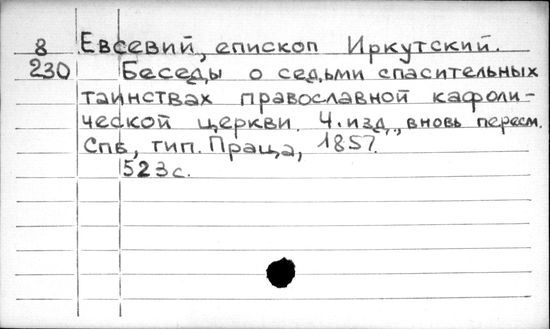 8 Евсевий, епископ Иркутский.
230 Беседы о седьми спасительных
таинствах православной кафоли-
ческой церкви. 4.изд., вновь пересм.
Спв, тип. Праца, 1857.
523с.